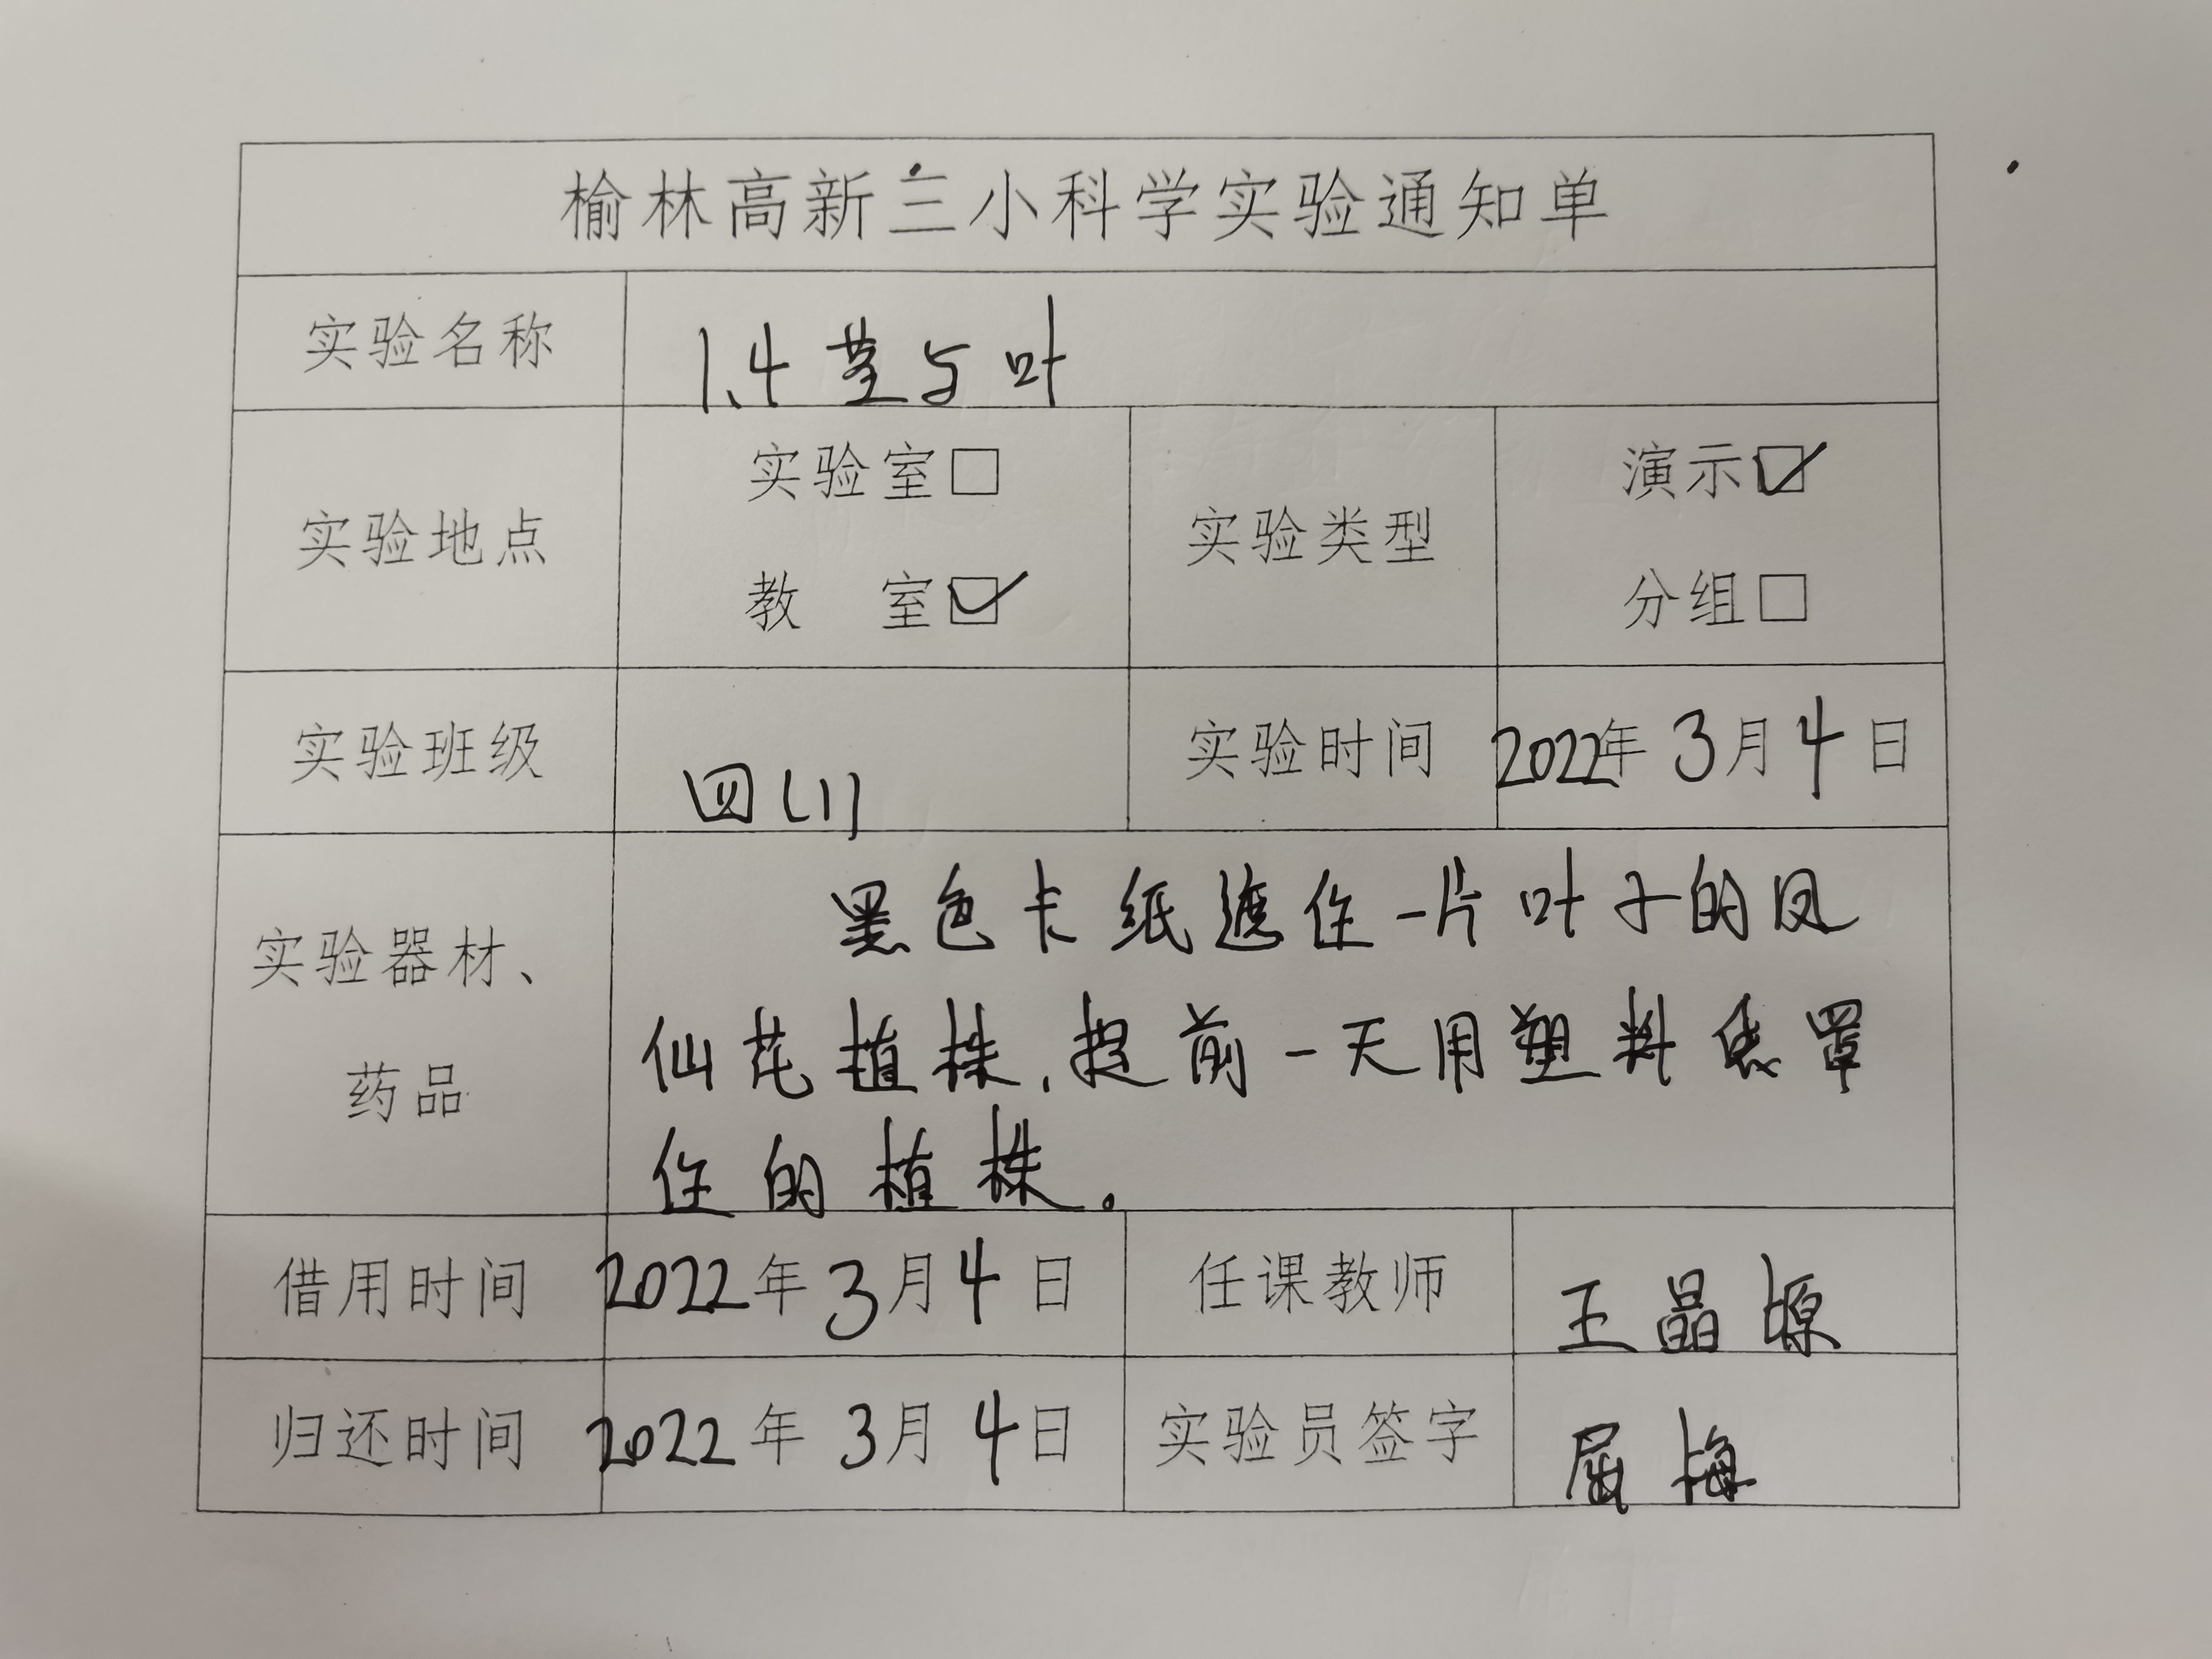 榆林高新三小科学实验通知单
实验名称 1.4 茎与叶
实验地点 实验室□ 教 室☑ 实验类型 演示☑ 分组□
实验班级 四(1) 实验时间 2022年3月4日
实验器材、药品
黑色卡纸遮住一片叶子的凤
仙花植株,提前一天用塑料袋罩
住的植株。
借用时间 2022年3月4日 任课教师 王晶塬
归还时间 2022年3月4日 实验员签字 屈梅